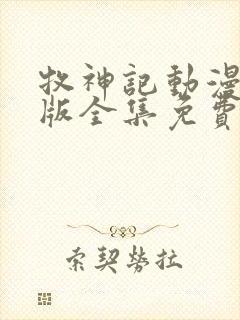 牧神記動漫
版全集免費
索契勞拉